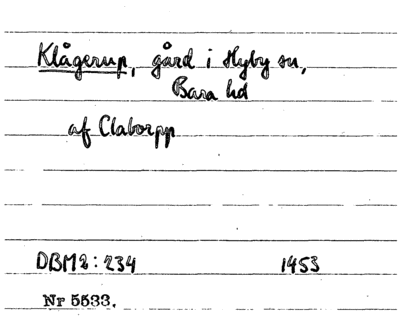 Klågerup, gård i Hyby sn,
Bara hd
af Claborpp
DBM2:234 1453
Nr 5533.